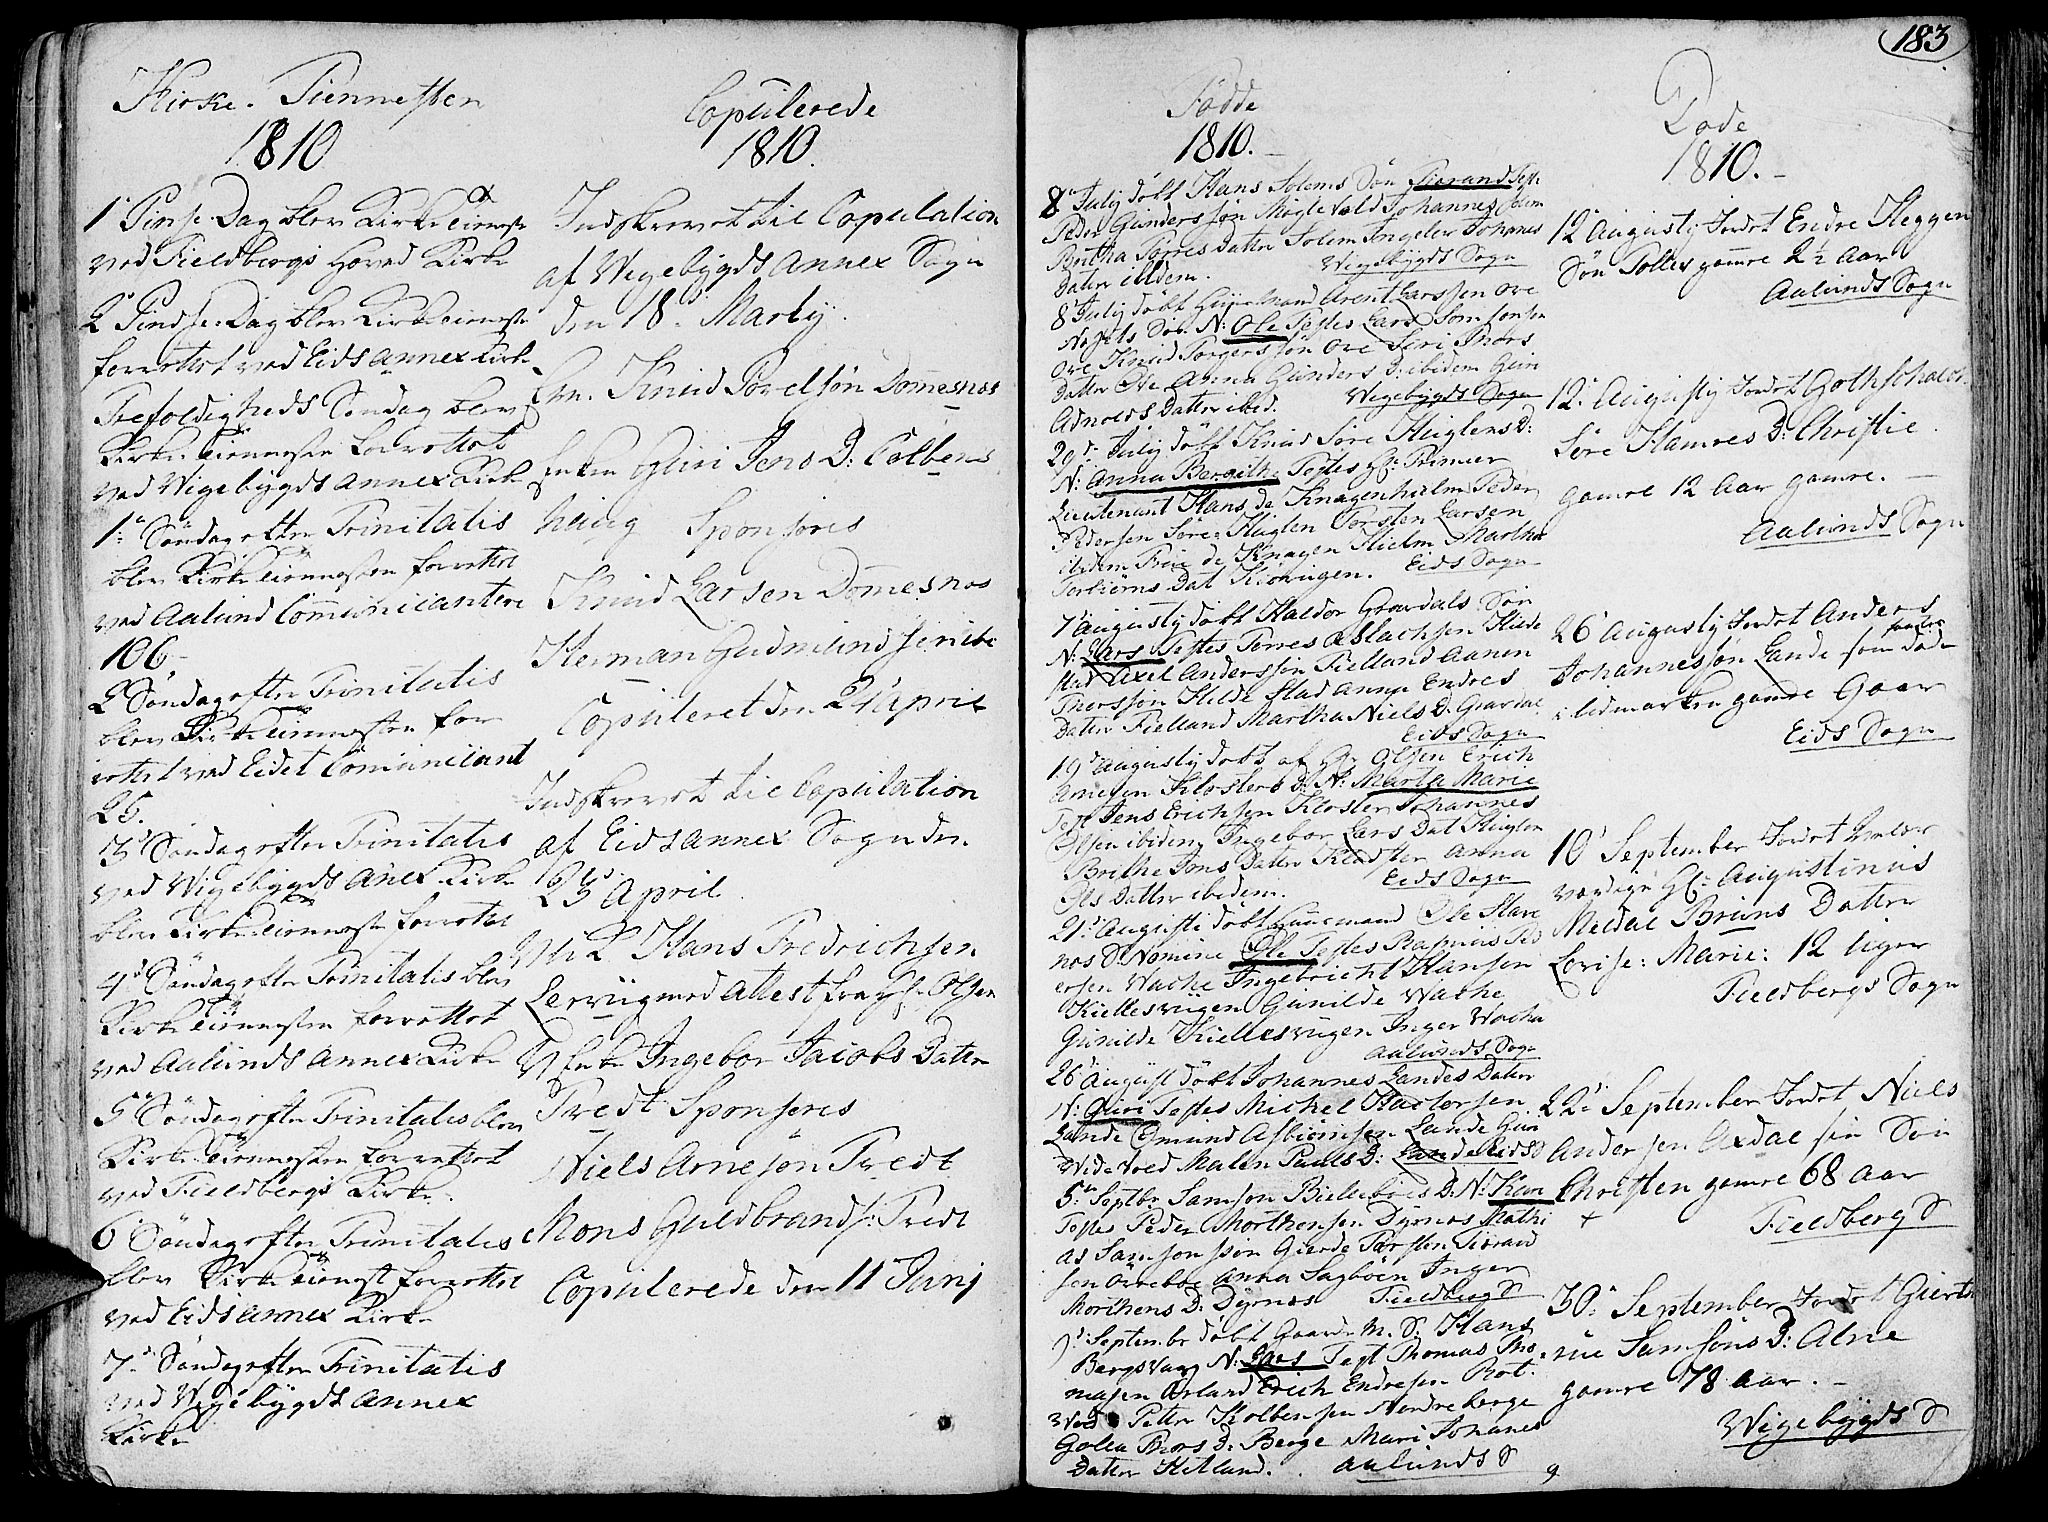 Kirke-Tiennesten
1810
1te Pinse-Dag blev Kirketienneste
ved Fieldbergs Hoved Kirke
2den Pindse-Dag blev Kirketienneste
forrettet ved Eids Annex Kirke
Trefoldigheds Søndag blev
Kirketiennesten forrettet
ved Wigebygds Annex Kirke
1te Søndag efter Trinitatis
blev Kirketiennesten forrettet
ved Aalund Communicantere
106
2den Søndag efter Trinitatis
blev Kirketiennesten for
rettet ved Eidet Communicant
25.
3de Søndag efter Trinitatis
ved Wigebygds Anex Kirke
blev Kirketienneste forrettet
4de Søndag efter Trinitatis blev
Kirketiennesten forrettet
ved Aalunds Annex Kirke
5te Søndag efter Trinitatis blev
Kirketiennesten forrettet
ved Fieldbergs Kirke
6te Søndag efter Trinitatis
blev Kirketienneste forrettet
ved Eids Annex Kirke
7de Søndag efter Trinitatis
ved Wigebygds Annex
Kirke
Copulerede
1810.
Indskrevet til Copulation
af Wigebygds Annex Sogn
den 18de Martij.
Em. Knud Povelsøn Dommesnes
Enken Guri Jens D: Colbens
haug Sponsores
Knud Larsen Dommesnes
Herman Gudmundsen ibd
Copuleret den 24 April
Indskrevet til Copulation
af Eids Annex Sogn den
23de April.
Hans Fredrichsen
Lervüg med Attest fra Hr Olsen
Enke Ingebor Jacobs Datter
Tredt Sponsores
Niels Arnesøn Tredt
Mons Guldbrands: Tredt
Copulerede den 11 Junij
183
Fødde
1810.
8de Julij døbt Hans Solems Søn Tierand Test:
Peder Gundersøn Miglevold Johannes Solem
Britha Torres Datter Solem Ingeler Johanes
Datter ibidem. Wigebygds Sogn
8 Julij døbt Huusmand Arent Larssen Ore
Søn N: Ole Testes Lars Somsonsen
Ore Knud Torgersøn Ore Siri Thors
Datter Ore Anna Gunders D: ibidem Guri
Adnolds Datter ibid. Wigebygds Sogn
29de Julij døbt Knud Søre Huglens D:
N: Anna Bergithe Testes Hr: Premier
Lieutenant Hans de Knagenhielm Peder
Pedersen Søre-Huglen Torsten Larsen
ibidem Frue de Knagen Hielm Martha
Torbiørns Dat Kionigen. Eids Sogn
7de Augustij døbt Haldor Gravdals Søn
N: Lars Testes Torres Aslachsen Hilde
stad Axel Anderssøn Fielland Aanen
Thorssøn Hildestad Anna Endres
Datter Fielland Martha Niels D: Gravdal
Eids Sogn
19de Augustij døbt af Hr Olsen Erich
Arnesen Klosters D: N: Marta Marie
Test Jens Erichsen Kloster Johannes
Olsen ibidem Ingebor Lars Dat Huglen
Brithe Jons Datter Kloster Anna
Ols Datter ibidem. Eids Sogn
21de Augusti døbt Huusmand Ole Hare
nos S: Nomine Ole Testes Rasmus Ped
ersen Wache Ingebricht Hansen
Kiellesvügen Gunilde Wache
Gunilde Kiellesvügen Inger Wacha
Aalunds Sogn
26de August døbt Johannes Landes Datter
N: Guri Testes Michel Haktorsen
Lande Omund Asbiørnsen Lande Guri
Widevold Malen Pauls D: Lande Eids S
5te Septbr Samson Bielleboes D: N: Kari
Testes Peder Morthensen Dyrnes Mathi
as Samsonsøn Gierde Torsten Tierand
sen Ovreboe Anna Sagbøen Inger
Morthens D: Dyrnes Fieldberg S
9de Septembr døbt Gaard-M. S: Hans
Bergsvaag N: Lars Test Thomas Tho
masen Arland Erich Endresen Rot
Petter Kolbensen Nordreberge
Golea Thors D: Berge Mari Johanes
Datter Hetland. Aalunds S
Døde
1810.
12te Augustij Jordet Endre Heggen
Søn Tolles gamle 2½ Aar
Aalunds Sogn
12te Augustij Jordet Gothschalch
Søre Hamres D: Christie.
gamle 12 Aar gamle.
Aalunds Sogn
26de Augustij Jordet Anders
Johannessøn Lande som døde
gamle 6 Aar
Eids Sogn
10de September Jordet Velær
værdige Hr: Augustinus
Meldal Bruns Datter
Lovise: Marie: 12 Uger
Fieldbergs Sogn
22de September Jordet Niels
Andersen Axdal sin Søn
Christen gamle 68 Aar
+ Fieldberg S
30de September Jordet Giert
rue Samsons D: Alne
gamle 78 Aar.
Wigebygds S